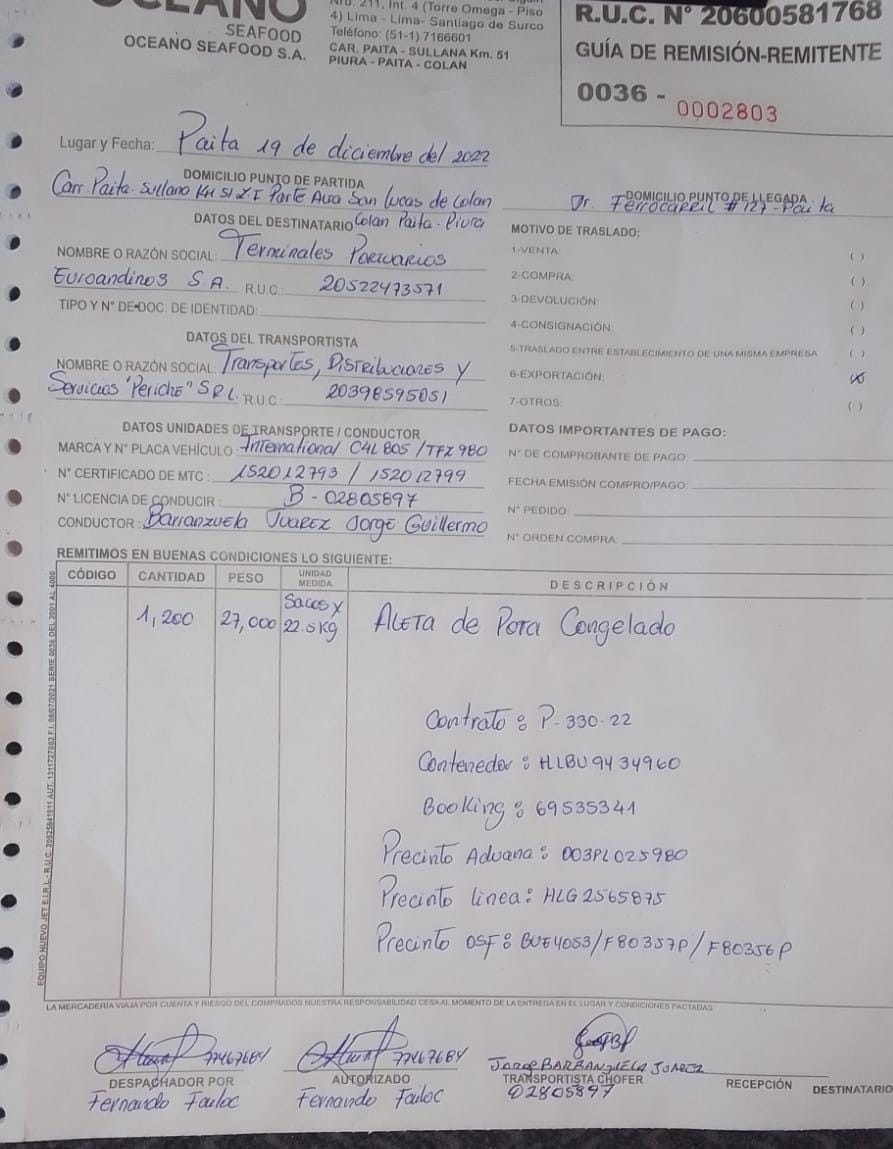 OCEANO
SEAFOOD
OCEANO SEAFOOD S.A.
Nro. 211, Int. 4 (Torre Omega - Piso
4) Lima - Lima- Santiago de Surco
Teléfono: (51-1) 7166601
CAR. PAITA - SULLANA Km. 51
PIURA - PAITA - COLAN
R.U.C. N° 20600581768
GUÍA DE REMISIÓN-REMITENTE
0036 - 0002803
Lugar y Fecha: Paita 19 de diciembre del 2022
DOMICILIO PUNTO DE PARTIDA
Carr. Paita-Sullana KM 51 Parte Alta San Lucas de Colan
Colan Paita - Piura
DOMICILIO PUNTO DE LLEGADA
Jr. Ferrocarril # 127 - Paita
DATOS DEL DESTINATARIO
NOMBRE O RAZÓN SOCIAL: Terminales Portuarios
Euroandinos S.A. R.U.C.: 20522473571
TIPO Y N° DE DOC. DE IDENTIDAD:
MOTIVO DE TRASLADO:
1-VENTA: ( )
2-COMPRA: ( )
3-DEVOLUCIÓN: ( )
4-CONSIGNACIÓN: ( )
5-TRASLADO ENTRE ESTABLECIMIENTO DE UNA MISMA EMPRESA ( )
6-EXPORTACIÓN: (X)
7-OTROS: ( )
DATOS DEL TRANSPORTISTA
NOMBRE O RAZÓN SOCIAL: Transportes, Distribuciones y
Servicios "Periche" S R L. R.U.C.: 20398595051
DATOS UNIDADES DE TRANSPORTE / CONDUCTOR
MARCA Y N° PLACA VEHÍCULO: International C4L 805 / TFZ 980
N° CERTIFICADO DE MTC: 152012793 / 152012799
N° LICENCIA DE CONDUCIR: B - 02805897
CONDUCTOR: Barranzuela Juarez Jorge Guillermo
DATOS IMPORTANTES DE PAGO:
N° DE COMPROBANTE DE PAGO:
FECHA EMISIÓN COMPRO/PAGO:
N° PEDIDO:
N° ORDEN COMPRA:
REMITIMOS EN BUENAS CONDICIONES LO SIGUIENTE:
CÓDIGO CANTIDAD PESO UNIDAD MEDIDA DESCRIPCIÓN
1,200 27,000 Sacos x 22.5Kg Aleta de Pota Congelado
Contrato: P-330-22
Contenedor: HLBU 9434960
Booking: 69535341
Precinto Aduana: 003PL025980
Precinto linea: HLG2565875
Precinto OSF: BUE4053/F80357P/F80356P
EQUIPO NUEVO JET E.I.R.L - R.U.C. 20525841911 AUT. 1311727063 F.I. 08/07/2021 SERIE 0036 DEL 2001 AL 4000
LA MERCADERÍA VIAJA POR CUENTA Y RIESGO DEL COMPRADOS NUESTRA RESPONSABILIDAD CESA AL MOMENTO DE LA ENTREGA EN EL LUGAR Y CONDICIONES PACTADAS
77467684
DESPACHADOR POR
Fernando Failoc
77467684
AUTORIZADO
Fernando Failoc
Jorge BARRANZUELA JUAREZ
TRANSPORTISTA CHOFER
02805897
RECEPCIÓN DESTINATARIO